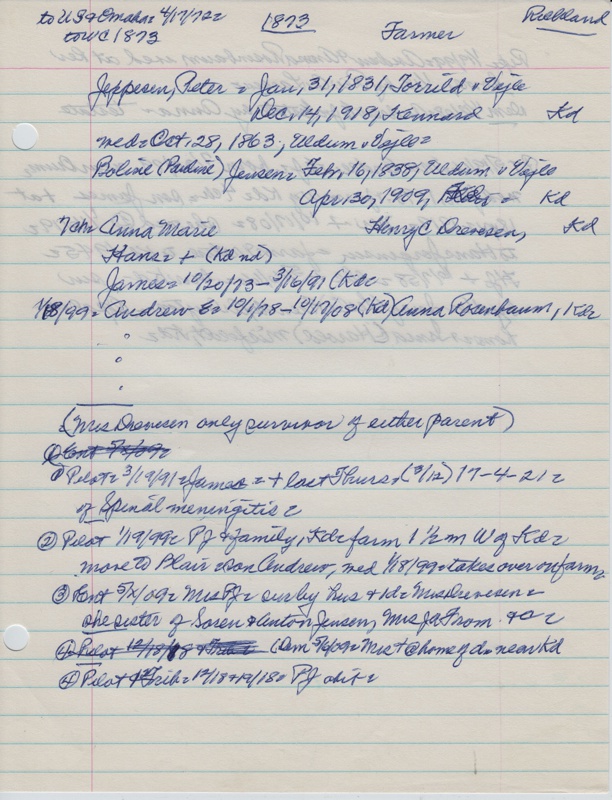 to USA Omaha = 4/17/72 =
to WC 1873
1873
Farmer
Richland
Jeppesen, Peter = Jan, 31, 1831, Torrild = Vejle
Dec, 14, 1918, Kennard Kd
med = Oct, 28, 1863, Uldum = Vejle =
Boline (Pauline) Jensen = Feb, 16, 1838, Uldum = Vejle
Apr, 30, 1909, = Kd
7 ch = Anna Marie Henry C Drevesen, Kd
Hans = + (Kd nd)
James = 10/20/73 - 3/16/91 (Kd =
1/18/99 = Andrew E = 10/1/78 - 10/17/08 (Kd) Anna Rosenbaum, Kd =
(Mrs Drevesen only survivor of either parent)
① Pilot = 3/19/91 = James = + last Thurs = (3/12) 17-4-21 =
of Spinal meningitis =
② Pilot 1/19/99 = PJ & family, Kd = farm 1 1/2 m W of Kd =
move to Blair = son Andrew, med 1/18/99 = takes over on farm =
③ Ent 5/X/09 = Mrs PJ = sur by hus & 1d = Mrs Drevesen =
she sister of Soren & Anton Jensen, Mrs Ja From. + O =
④ Pilot 12/18/18 & Trib = (Dem 5/6/09 = Mrs + @ home of d = near Kd
④ Pilot & Trib = 12/18 & 19/18 = PJ obit =